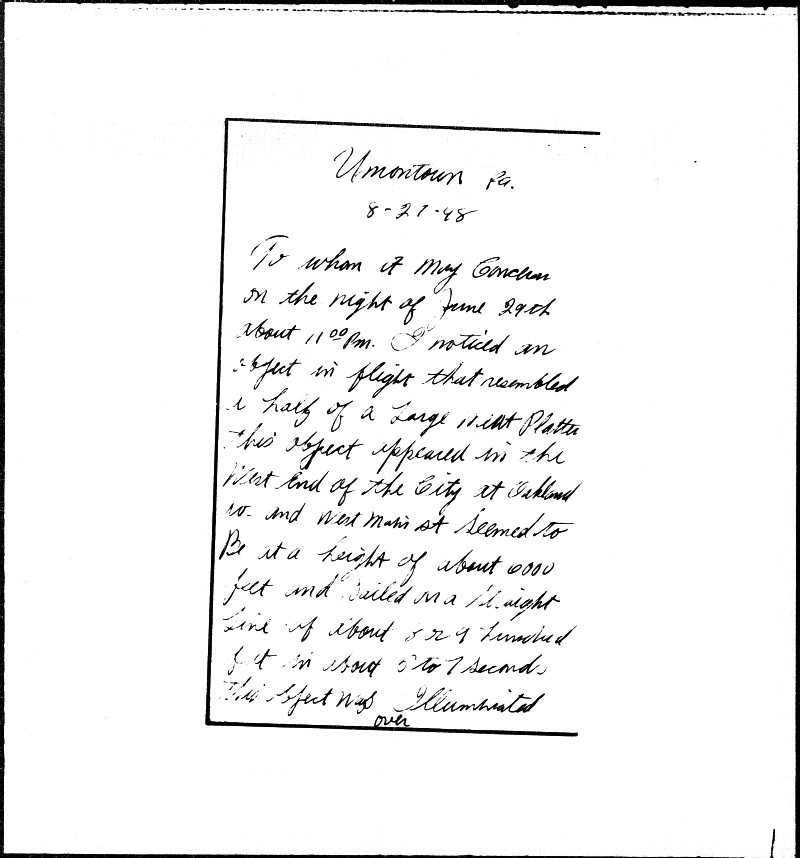 Uniontown Pa.
8-27-48
To whom it May Concern
on the night of June 29th
about 11 00 Pm. I noticed an
object in flight that resembled
a half of a Large Meat Platter
this object appeared in the
West End of the City at Oakland
and West Main st seemed to
Be at a height of about 6000
feet and sailed in a straight
Line of about 8 or 9 hundred
feet in about 5 to 7 seconds
this object was Illuminated
over